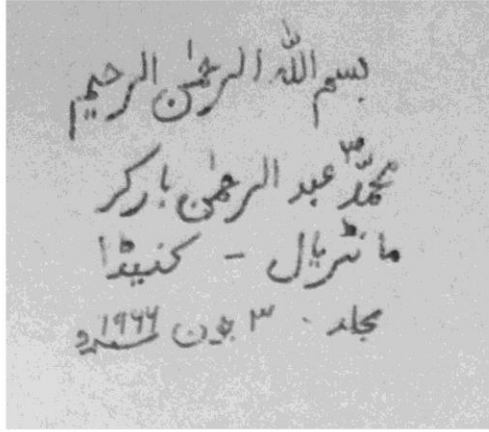 بسم اللہ الرحمٰن الرحیم
محمّدؐ عبد الرحمٰن بارکر
مانٹریال - کنیڈا
مجلد . ۳ جون ۱۹۶۶ء